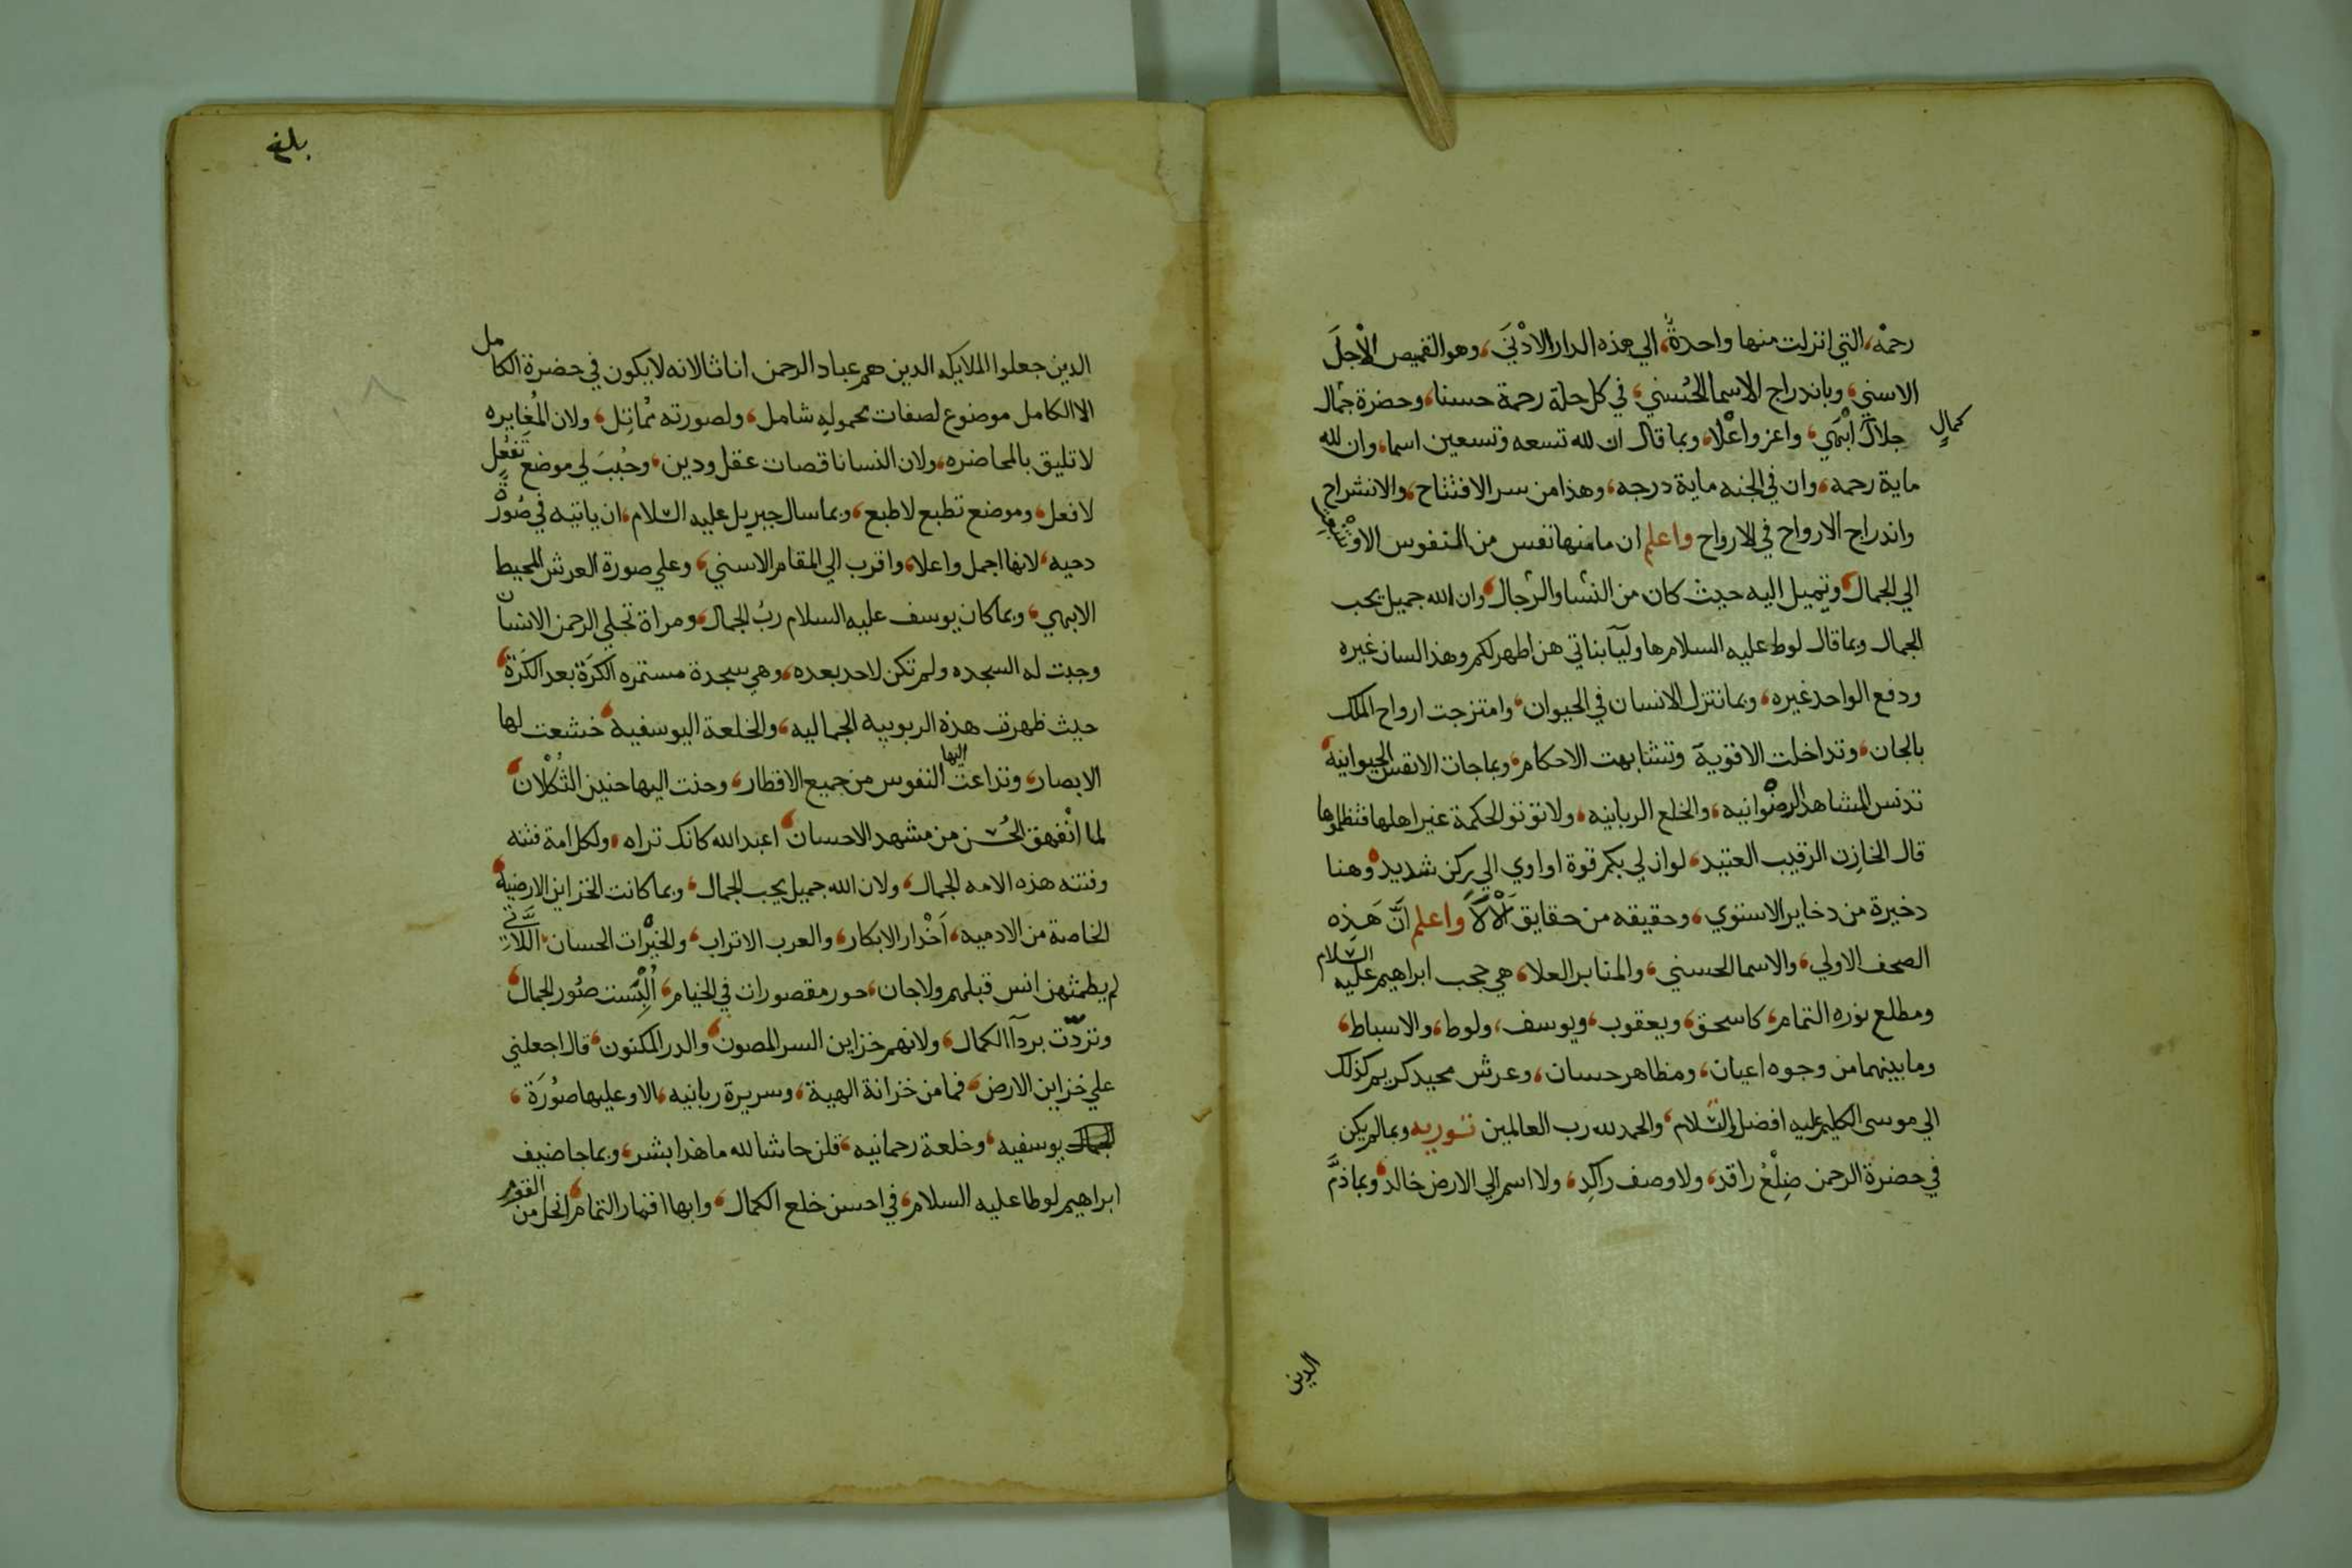 رحمة، التي انزلت منها واحدة، الي هذه الدار الادني، وهو القميص الاجل
الاسني، وباندراج الاسما الحسني، في كل حلة رحمة حسنا، وحضرة جمال
كمال
جلال ابهي، واعز واعلا، وبما قال ان لله تسعه وتسعين اسما، وان لله
ماية رحمه، وان في الجنه ماية درجه، وهذا من سر الافتتاح، والانشراح
واندراج الارواح في الارواح واعلم ان ما منها نفس من النفوس الا وتعشق
الي الجمال، وتميل اليه حيث كان من النسا والرجال، وان الله جميل يحب
الجمال وبما قال لوط عليه السلام هاوليآ بناتي هن اطهر لكم وهذا لسان غيره
ودفع الواحد غيره، وبما تنزل الانسان في الحيوان، وامتزجت ارواح الملك
بالجان، وتداخلت الاقوية وتشابهت الاحكام، وبما جات الانفس الحيوانية،
تدنس المشاهد الرضوانيه، والخلع الربانيه، ولا توتو الحكمة غير اهلها فتظلموها
قال الخازن الرقيب العتيد، لو ان لي بكم قوة او اوي الي ركن شديد، وهنا
دخيرة من دخاير الاستوي، وحقيقه من حقايق الألآ واعلم ان هذه
الصحف الاولي، والاسما الحسني، والمنابر العلا، هي حجب ابراهيم عليه السلام
ومطلع نوره التمام، كاسحق، ويعقوب، ويوسف، ولوط، والاسباط،
وما بينهما من وجوه اعيان، ومظاهر حسان، وعرش مجيد كريم كذلك
الي موسى الكليم عليه افضل السلام، والحمد لله رب العالمين توريه وبما لم يكن
في حضرة الرحمن ضلع راقد، ولا وصف راكد، ولا اسم الي الارض خالد، وبما ذم
الدين
بلغ
الدين جعلوا الملايكه الدين هم عباد الرحمن اناثا لانه لا يكون في حضرة الكامل
الا الكامل موضوع لصفات محموله شامل، ولصورته مماثل، ولان المغايره
لا تليق بالمحاضره، ولان النسا ناقصات عقل ودين، وحبب لي موضع تفعل
لا فعل، وموضع تطبع لا طبع، وبما سال جبريل عليه السلام، ان ياتيه في صورة
دحيه، لانها اجمل واعلا، واقرب الي المقام الاسني، وعلي صورة العرش المحيط
الابهي، وبما كان يوسف عليه السلام رب الجمال، ومراة تجلي الرحمن الانسان
وجبت له السجده ولم تكن لاحد بعده، وهي سجدة مستمره الكرة بعد الكرة،
حيث ظهرت هذه الربوبيه الجماليه، والخلعة اليوسفية، خشعت لها
الابصار، وتداعت اليها النفوس من جميع الاقطار، وحنت اليها حنين الثكلان،
لما انفهق الحسن من مشهد الاحسان، اعبد الله كانك تراه، ولكل امة فتنه
وفتنه هذه الامه الجمال، ولان الله جميل يحب الجمال، وبما كانت الخزاين الارضية،
الخاصة من الادميه، اخدار الابكار، والعرب الاتراب، والخيرات الحسان، اللاتي
لم يطمثهن انس قبلهم ولا جان، حور مقصورات في الخيام، البست صور الجمال،
وتردت بردآ الكمال، ولانهم خزاين السر المصون، والدر المكنون، قال اجعلني
علي خزاين الارض، فما من خزانة الهية، وسريرة ربانيه، الا وعليها صورة،
يوسفيه، وخلعة رحمانيه، قلن حاشا لله ما هذا بشر، وبما جا ضيف
ابراهيم لوطا عليه السلام، في احسن خلع الكمال، وابها اقمار التمام، انحل من القوم